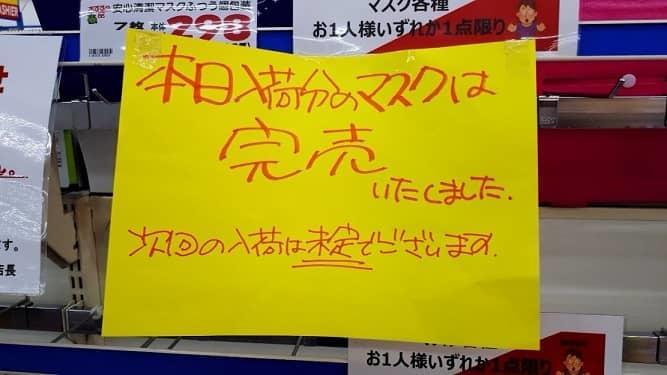 CASHIER
安心清潔マスクふつう個包装
7枚 本体 298
マスク各種
お1人様いずれか1点限り
本日入荷分のマスクは
完売
いたしました.
次回の入荷は未定でございます.
す。
店長
お1人様いずれか1点限り